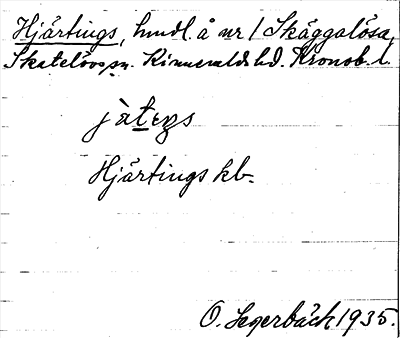 Hjärtings, hmdl. å nr 1 Skäggalösa,
Skatelövs sn. Kinnevalds hd. Kronob. l.
jàtₑŋs
Hjärtings kb.
O. Segerbäck 1935.